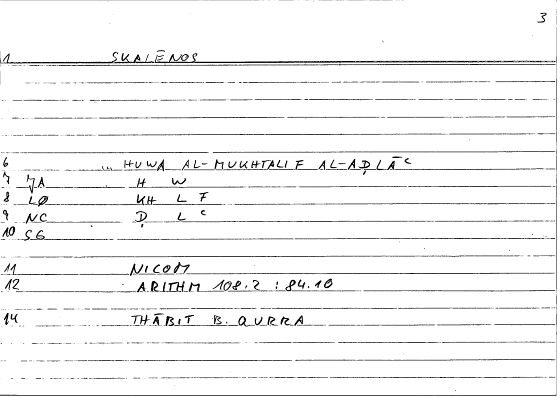 3
1 SKALĒNOS
6 ... HUWA AL-MUKHTALIF AL-AḌLĀʿ
7 JA H W
8 LØ KH L F
9 NC Ḍ L ʿ
10 SG
11 NICOM
12 ARITHM 108.2 : 84.10
14 THĀBIT B. QURRA